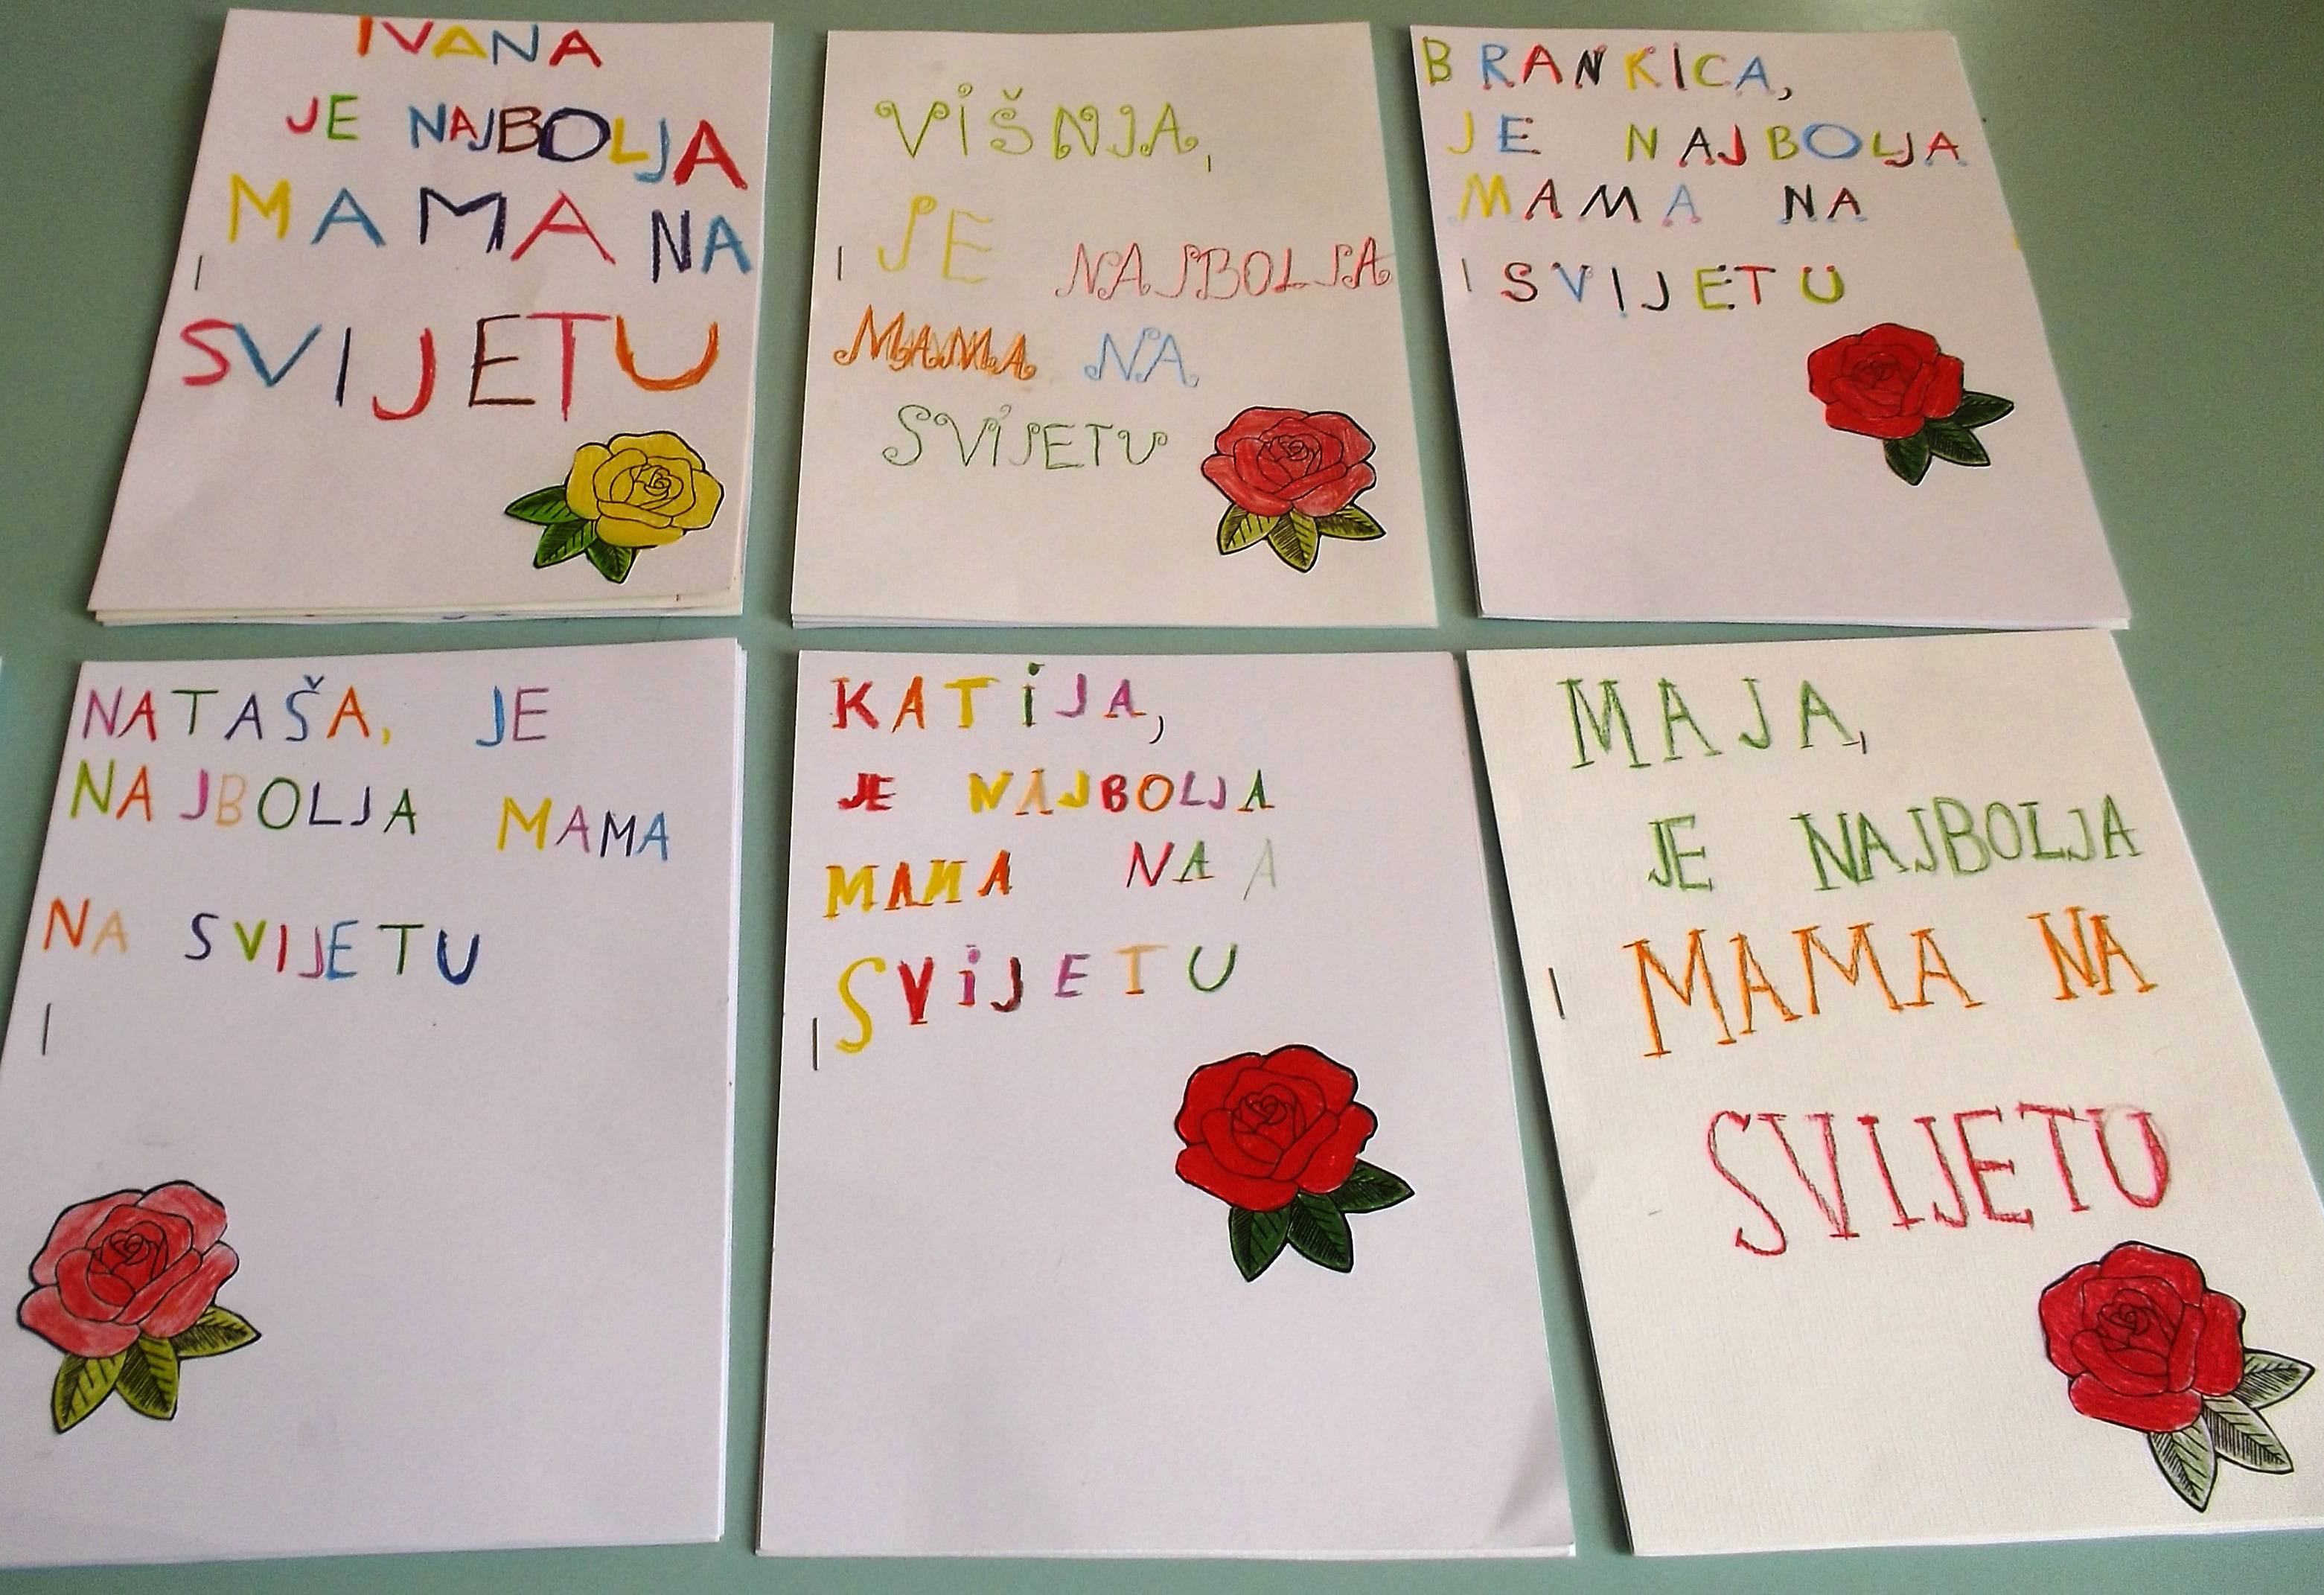 IVANA
JE NAJBOLJA
MAMA NA
SVIJETU
VIŠNJA,
JE NAJBOLJA
MAMA NA
SVIJETU
BRANKICA,
JE NAJBOLJA
MAMA NA
SVIJETU
NATAŠA, JE
NAJBOLJA MAMA
NA SVIJETU
KATIJA,
JE NAJBOLJA
MAMA NA A
SVIJETU
MAJA,
JE NAJBOLJA
MAMA NA
SVIJETU